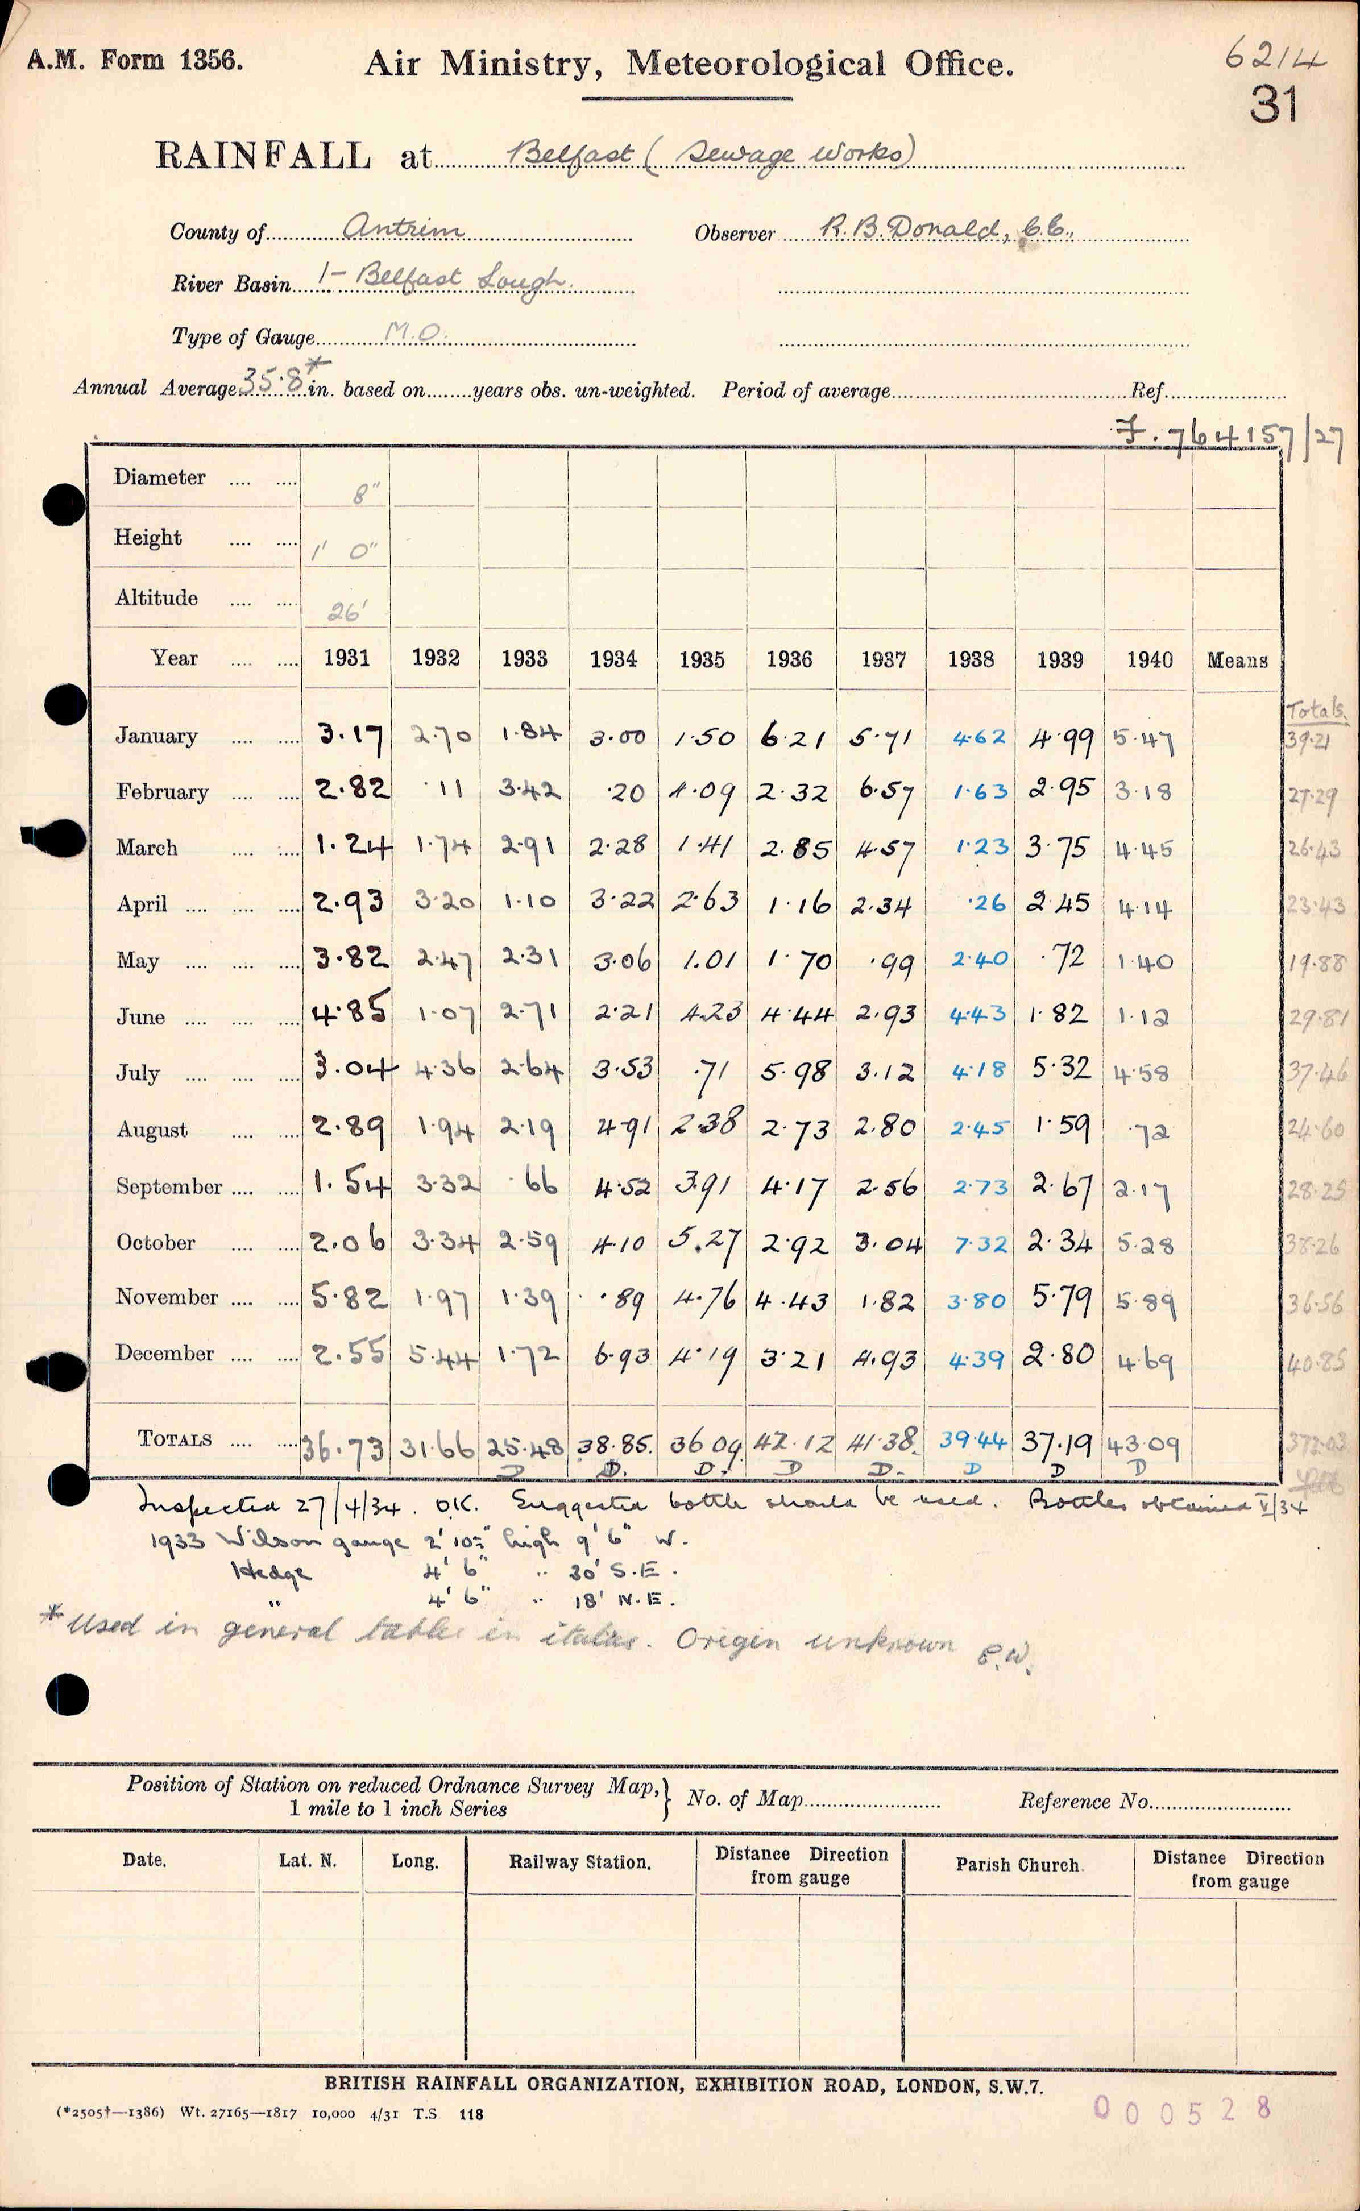 A.M. Form 1356.
Air Ministry, Meteorological Office.
6214
31
RAINFALL at Belfast (Sewage Works)
County of Antrim Observer R.B. Donald, C.E.,
River Basin 1- Belfast Lough.
Type of Gauge M.O.
Annual Average 35.8* in. based on years obs. un-weighted. Period of average Ref.
764157/27
Diameter 8"
Height 1' 0"
Altitude 26'
Year 1931 1932 1933 1934 1935 1936 1937 1938 1939 1940 Means
Totals.
January 3.17 2.70 1.84 3.00 1.50 6.21 5.71 4.62 4.99 5.47 39.21
February 2.82 .11 3.42 .20 4.09 2.32 6.57 1.63 2.95 3.18 27.29
March 1.24 1.74 2.91 2.28 1.41 2.85 4.57 1.23 3.75 4.45 26.43
April 2.93 3.20 1.10 3.22 2.63 1.16 2.34 .26 2.45 4.14 23.43
May 3.82 2.47 2.31 3.06 1.01 1.70 .99 2.40 .72 1.40 19.88
June 4.85 1.07 2.71 2.21 4.23 4.44 2.93 4.43 1.82 1.12 29.81
July 3.04 4.36 2.64 3.53 .71 5.98 3.12 4.18 5.32 4.58 37.46
August 2.89 1.94 2.19 4.91 2.38 2.73 2.80 2.45 1.59 .72 24.60
September 1.54 3.32 .66 4.52 3.91 4.17 2.56 2.73 2.67 2.17 28.25
October 2.06 3.34 2.59 4.10 5.27 2.92 3.04 7.32 2.34 5.28 38.26
November 5.82 1.97 1.39 .89 4.76 4.43 1.82 3.80 5.79 5.89 36.56
December 2.55 5.44 1.72 6.93 4.19 3.21 4.93 4.39 2.80 4.69 40.85
TOTALS 36.73 31.66 25.48 38.85. 36.09 42.12 41.38. 39.44 37.19 43.09 372.03
D D. D. D D. D D D
Inspected 27/4/34. O.K. Suggested bottle should be used. Bottles obtained V/34
1933 Wilson gauge 2' 10½" high 9' 6" W.
Hedge 4' 6" " 30' S.E.
" 4' 6" " 18' N.E.
*Used in general table in italics. Origin unknown P.W.
Position of Station on reduced Ordnance Survey Map,} No. of Map Reference No.
1 mile to 1 inch Series
Date. Lat. N. Long. Railway Station. Distance Direction from gauge Parish Church. Distance Direction from gauge
BRITISH RAINFALL ORGANIZATION, EXHIBITION ROAD, LONDON, S.W.7.
(*2505†—1386) Wt. 27165—1817 10,000 4/31 T.S 118
000528